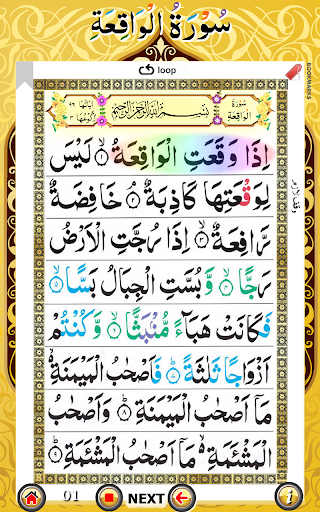 سُوْرَةُ الْوَاقِعَةِ
loop
BOOKMARKS
سُوْرَةُ الْوَاقِعَةِ بِسْمِ اللّٰهِ الرَّحْمٰنِ الرَّحِيْمِ اٰيَاتُهَا ٩٦ رُكُوْعُهَا ٣
اِذَا وَقَعَتِ الْوَاقِعَةُ ۙ﴿۱﴾ لَيْسَ
لِوَقْعَتِهَا كَاذِبَةٌ ۘ﴿۲﴾ خَافِضَةٌ
رَّافِعَةٌ ۙ﴿۳﴾ اِذَا رُجَّتِ الْاَرْضُ
رَجًّا ۙ﴿۴﴾ وَّ بُسَّتِ الْجِبَالُ بَسًّا ۙ﴿۵﴾
فَكَانَتْ هَبَآءً مُّنْۢبَثًّا ۙ﴿۶﴾ وَّ كُنْتُمْ
اَزْوَاجًا ثَلٰثَةً ؕ﴿۷﴾ فَاَصْحٰبُ الْمَيْمَنَةِ ۙ
مَاۤ اَصْحٰبُ الْمَيْمَنَةِ ؕ﴿۸﴾ وَ اَصْحٰبُ
الْمَشْـَٔمَةِ ۙ مَاۤ اَصْحٰبُ الْمَشْـَٔمَةِ ؕ﴿۹﴾
01 NEXT i